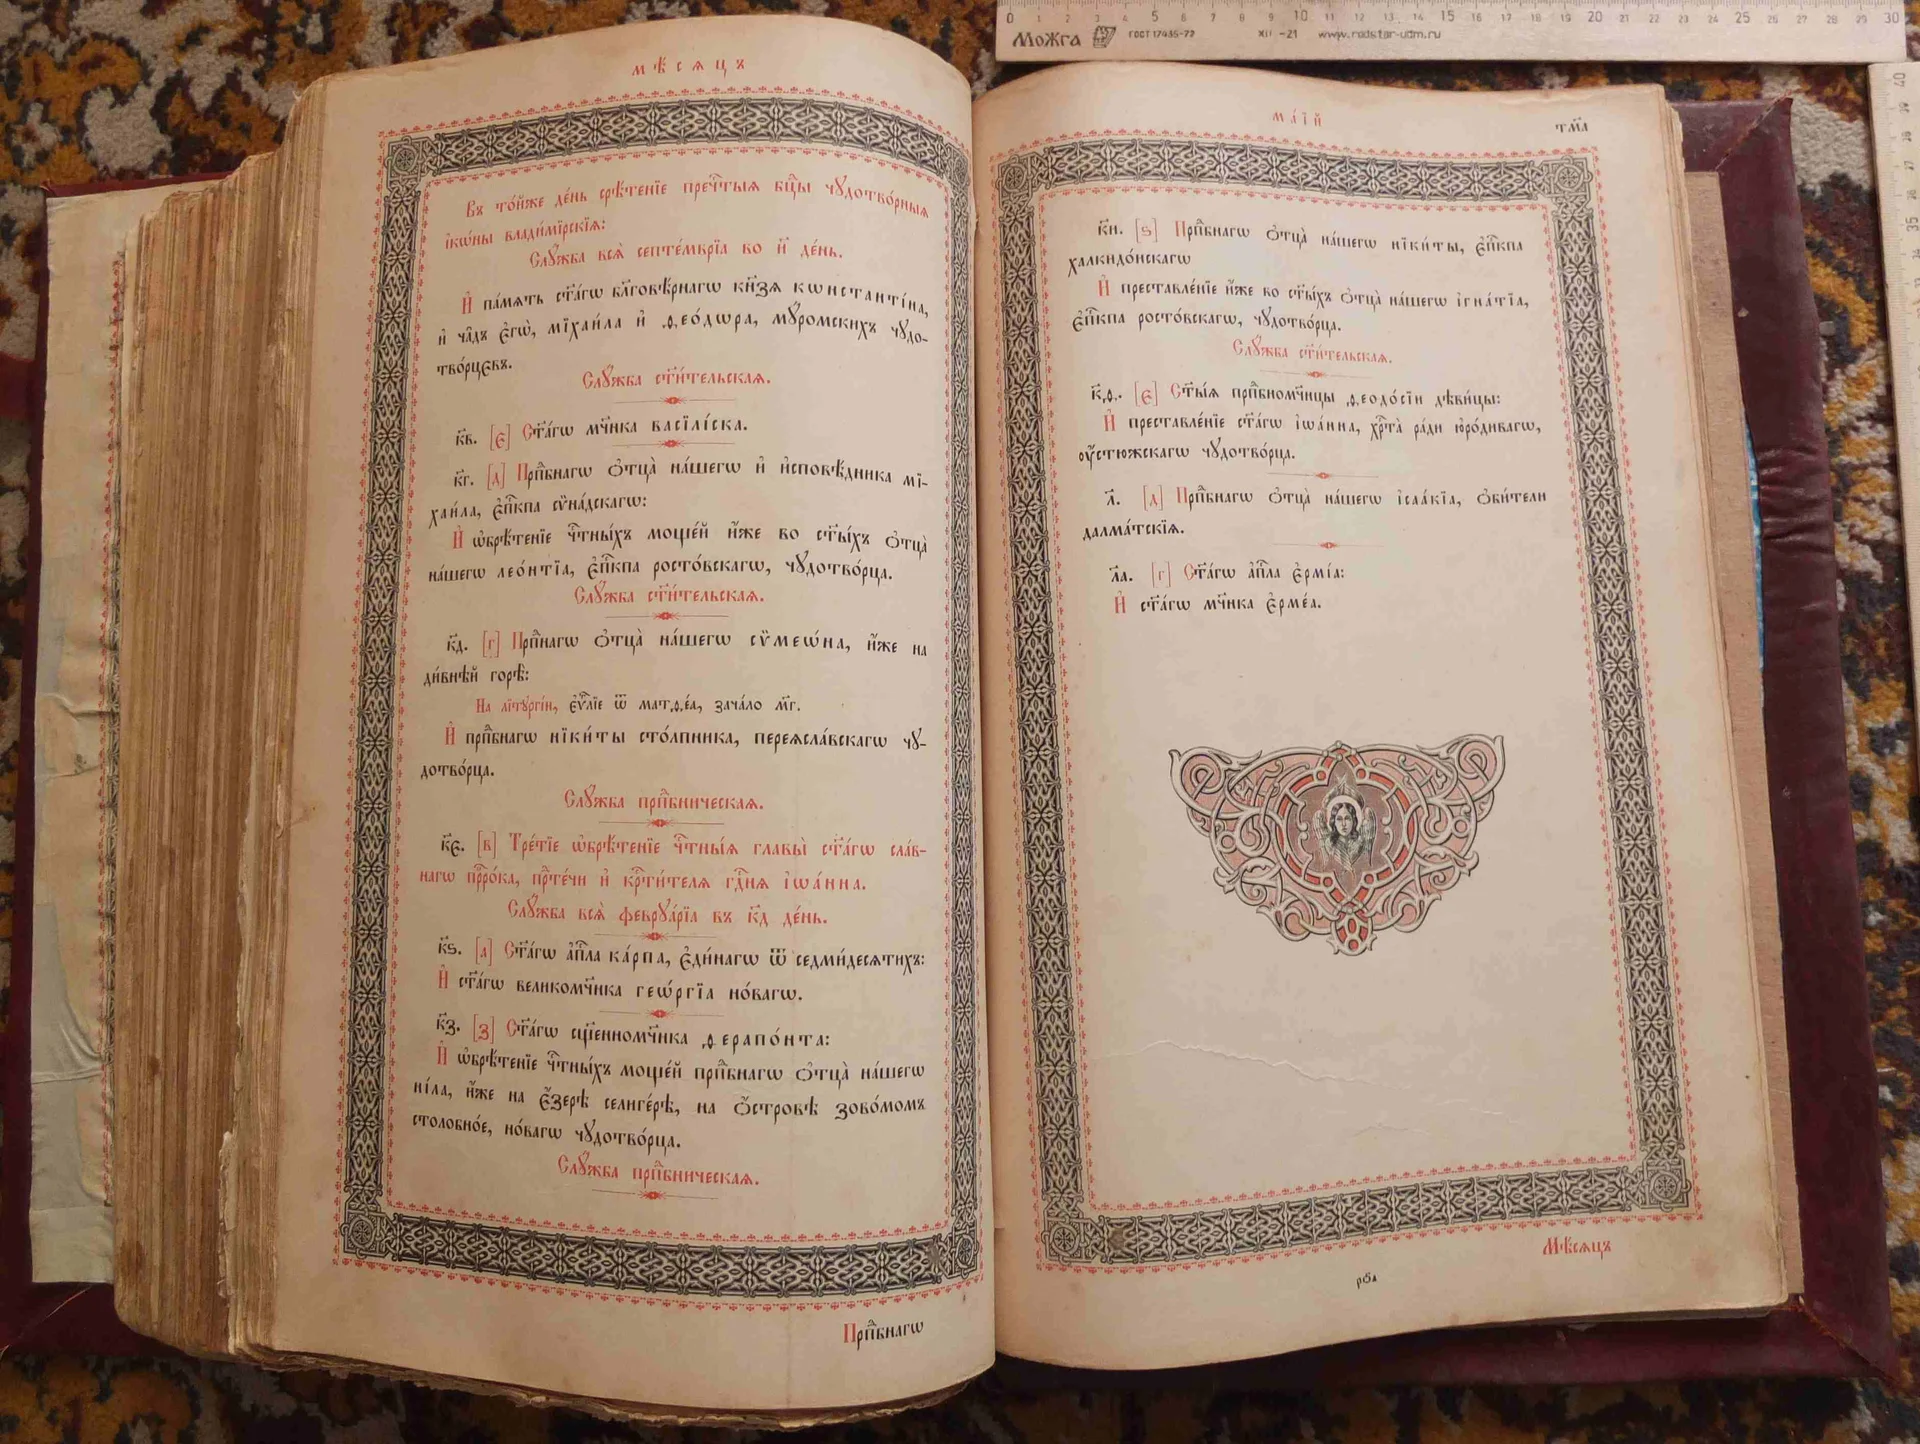 мѣсяцъ
Въ то́йже де́нь срѣ́тенїе пречⷭ҇тыѧ бцⷣы чꙋдотво́рныѧ
і҆кѡ́ны влади́мїрскїѧ:
Слꙋ́жба всѧ̀ септе́мврїа во и҃ де́нь.
И҆ па́мѧть ст҃а́гѡ бл҃говѣ́рнагѡ кн҃зѧ кѡнстанті́на,
и҆ ча̑дъ є҆гѡ̀, мїхаи́ла и҆ ѳео́дѡра, мꙋ́ромскихъ чꙋдо-
тво́рцєвъ.
Слꙋ́жба ст҃и́тельскаѧ.
к҃в. [є] Ст҃а́гѡ мч҃нка васїлі́ска.
к҃г. [д] Прпⷣбнагѡ ѻ҆тца̀ на́шегѡ и҆ и҆сповѣ́дника мї-
хаи́ла, є҆пⷭ҇кпа сѷна́дскагѡ:
И҆ ѡ҆брѣ́тенїе чⷭ҇тны́хъ моще́й и҆́же во ст҃ы́хъ ѻ҆тца̀
на́шегѡ лео́нтїа, є҆пⷭ҇кпа росто́вскагѡ, чꙋдотво́рца.
Слꙋ́жба ст҃и́тельскаѧ.
к҃д. [г] Прпⷣбнагѡ ѻ҆тца̀ на́шегѡ сѷмеѡ́на, и҆́же на
ди́внѣй горѣ̀:
На лїтꙋргі́и, є҆ѵⷢ҇лїе ѿ матѳе́а, зача́ло м҃г.
И҆ прпⷣбнагѡ ніки́ты сто́лпника, переѧсла́вскагѡ чꙋ-
дотво́рца.
Слꙋ́жба прпⷣбническаѧ.
к҃є. [в] Тре́тїе ѡ҆брѣ́тенїе чⷭ҇тны́ѧ главы̀ ст҃а́гѡ сла́в-
нагѡ прⷪ҇ро́ка, прⷣте́чи и҆ крⷭ҇ти́телѧ гдⷭ҇нѧ і҆ѡа́нна.
Слꙋ́жба всѧ̀ феврꙋа́рїа въ к҃д де́нь.
к҃ѕ. [д] Ст҃а́гѡ а҆пⷭ҇ла ка́рпа, є҆ди́нагѡ ѿ седми́десѧтихъ:
И҆ ст҃а́гѡ великомч҃нка геѡ́ргїа но́вагѡ.
к҃з. [з] Ст҃а́гѡ сщ҃енномч҃нка ѳерапо́нта:
И҆ ѡ҆брѣ́тенїе чⷭ҇тны́хъ моще́й прпⷣбнагѡ ѻ҆тца̀ на́шегѡ
ні́ла, и҆́же на є҆́зерѣ селиге́рѣ, на ѻ҆́стровѣ зово́момъ
столобно́е, но́вагѡ чꙋдотво́рца.
Слꙋ́жба прпⷣбническаѧ.
Прпⷣбнагѡ
маїй
тм҃а
к҃и. [ѕ] Прпⷣбнагѡ ѻ҆тца̀ на́шегѡ ніки́ты, є҆пⷭ҇кпа
халкидо́нскагѡ
И҆ преставле́нїе и҆́же во ст҃ы́хъ ѻ҆тца̀ на́шегѡ і҆гна́тїа,
є҆пⷭ҇кпа росто́вскагѡ, чꙋдотво́рца.
Слꙋ́жба ст҃и́тельскаѧ.
к҃ѳ. [є] Ст҃ы́ѧ прпⷣбномч҃ницы ѳеодо́сїи дѣви́цы:
И҆ преставле́нїе ст҃а́гѡ і҆ѡа́нна, хрⷭ҇та̀ ра́ди ю҆ро́дивагѡ,
оу҆́стюжскагѡ чꙋдотво́рца.
л҃. [д] Прпⷣбнагѡ ѻ҆тца̀ на́шегѡ і҆саа́кїа, ѻ҆би́тели
далма́тскїѧ.
л҃а. [г] Ст҃а́гѡ а҆пⷭ҇ла є҆рмі́а:
И҆ ст҃а́гѡ мч҃нка є҆рме́а.
Мѣсѧцъ
0 1 2 3 4 5 6 7 8 9 10 11 12 13 14 15 16 17 18 19 20 21 22 23 24 25 26 27 28 29 30
Можга ГОСТ 17435-72 XII -21 www.rudstar-udm.ru
40
39
38
37
36
35
34
33
32